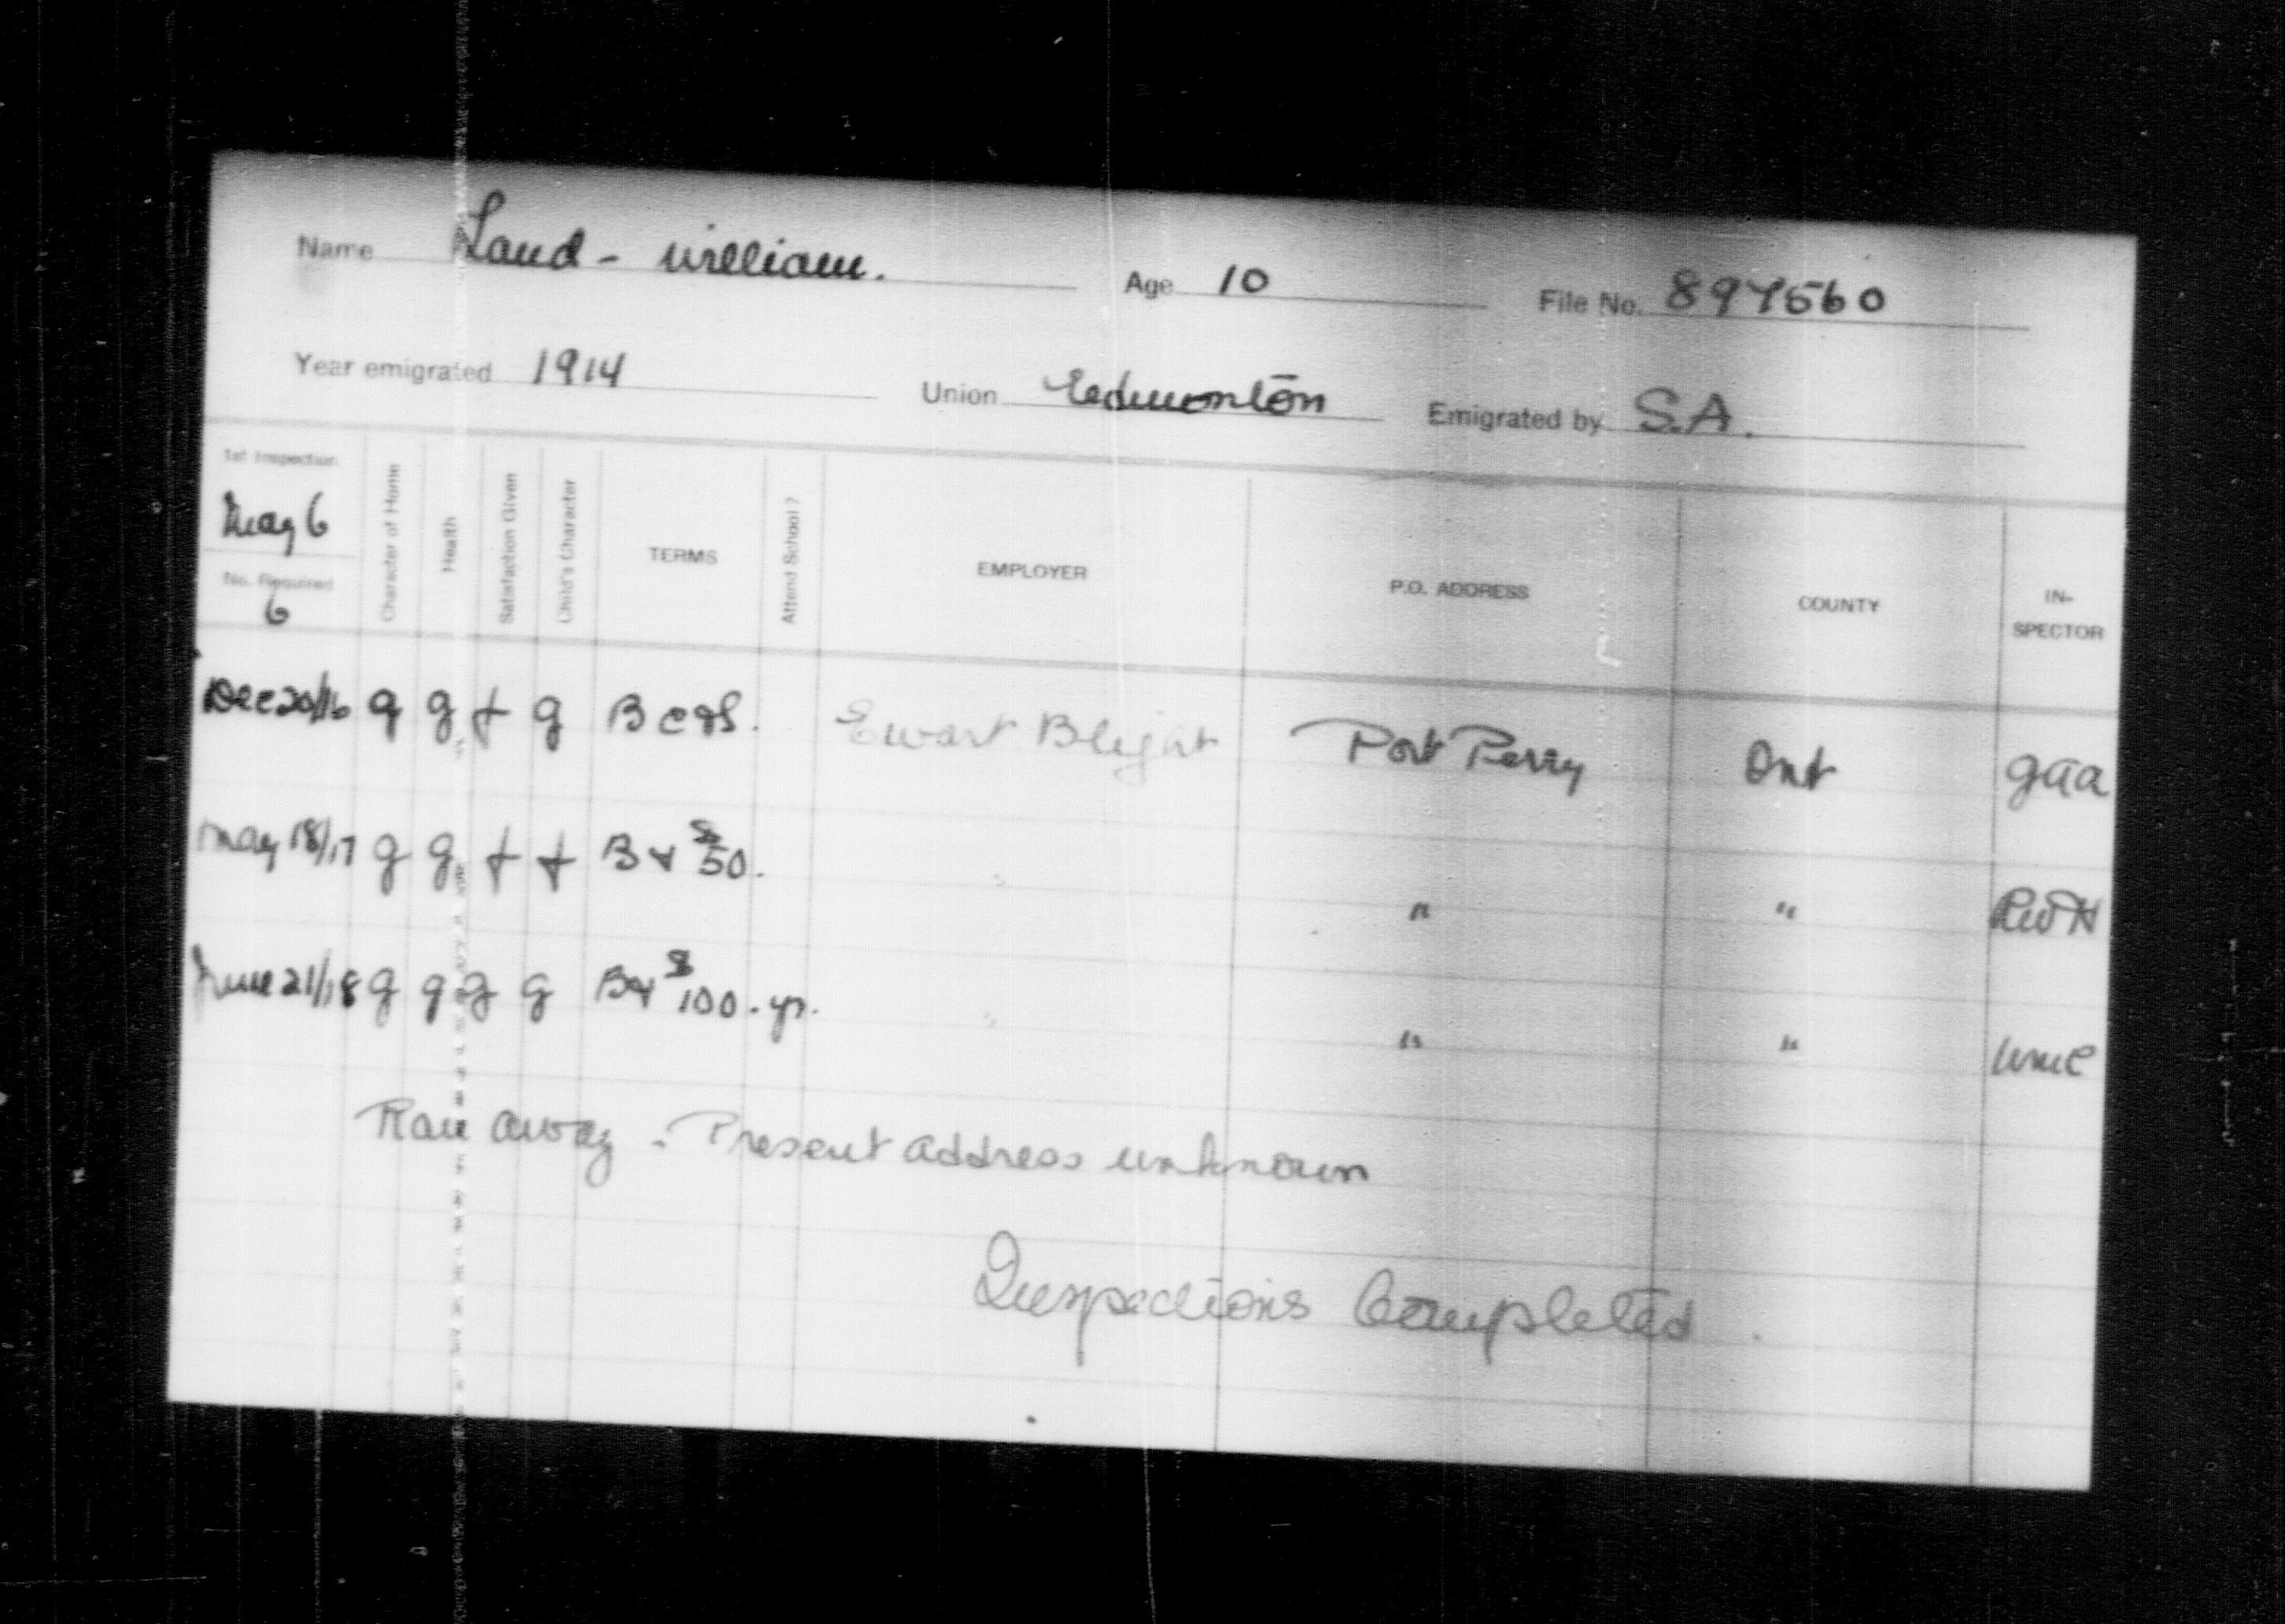 Name Land - William. Age 10 File No. 897560
Year emigrated 1914 Union Edmonton Emigrated by S.A.
1st Inspection
May 6
No. Required
6
Character of Home
Health
Satisfaction Given
Child's Character
TERMS
Attend School?
EMPLOYER
P.O. ADDRESS
COUNTY
IN-
SPECTOR
Dec 20/16 g g f g B c & S. Ewart Blight Port Perry Ont gaa
May 18/17 g g f f B & $50. " " " RWH
June 21/18 g g g g B & $100. yr. " " " WMC
Ran away - Present address unknown
Inspections Completed.